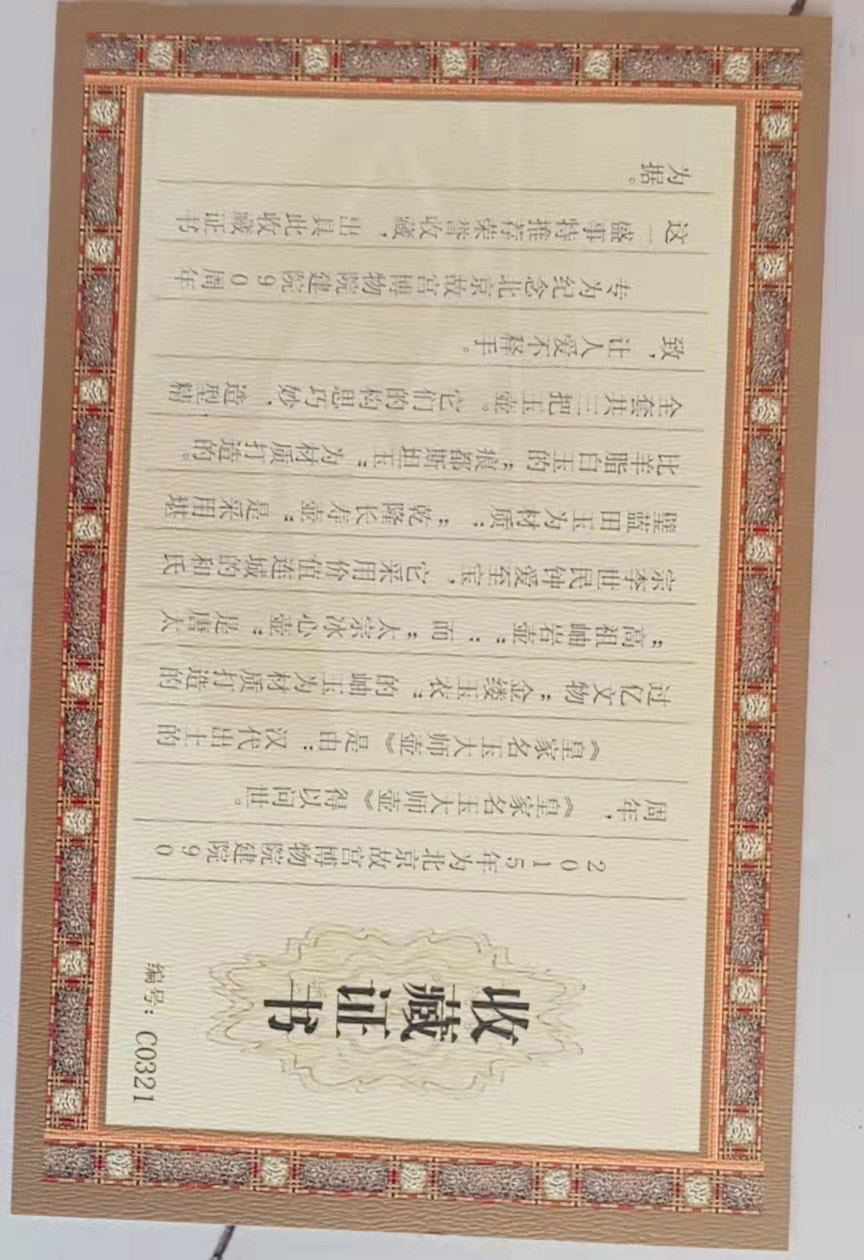 收藏证书
编号：C0321
2015年为北京故宫博物院建院90
周年，《皇家名玉大师壶》得以问世。
《皇家名玉大师壶》是由：汉代出土的
过亿文物“金缕玉衣”的岫玉为材质打造的
“高祖岫岩壶”；而“太宗冰心壶”是唐太
宗李世民钟爱至宝，它采用价值连城的和氏
璧蓝田玉为材质；“乾隆长寿壶”是采用堪
比羊脂白玉的“痕都斯坦玉”为材质打造的。
全套共三把玉壶。它们的构思巧妙，造型精
致，让人爱不释手。
专为纪念北京故宫博物院建院90周年
这一盛事特推荐荣誉收藏，出具此收藏证书
为据。